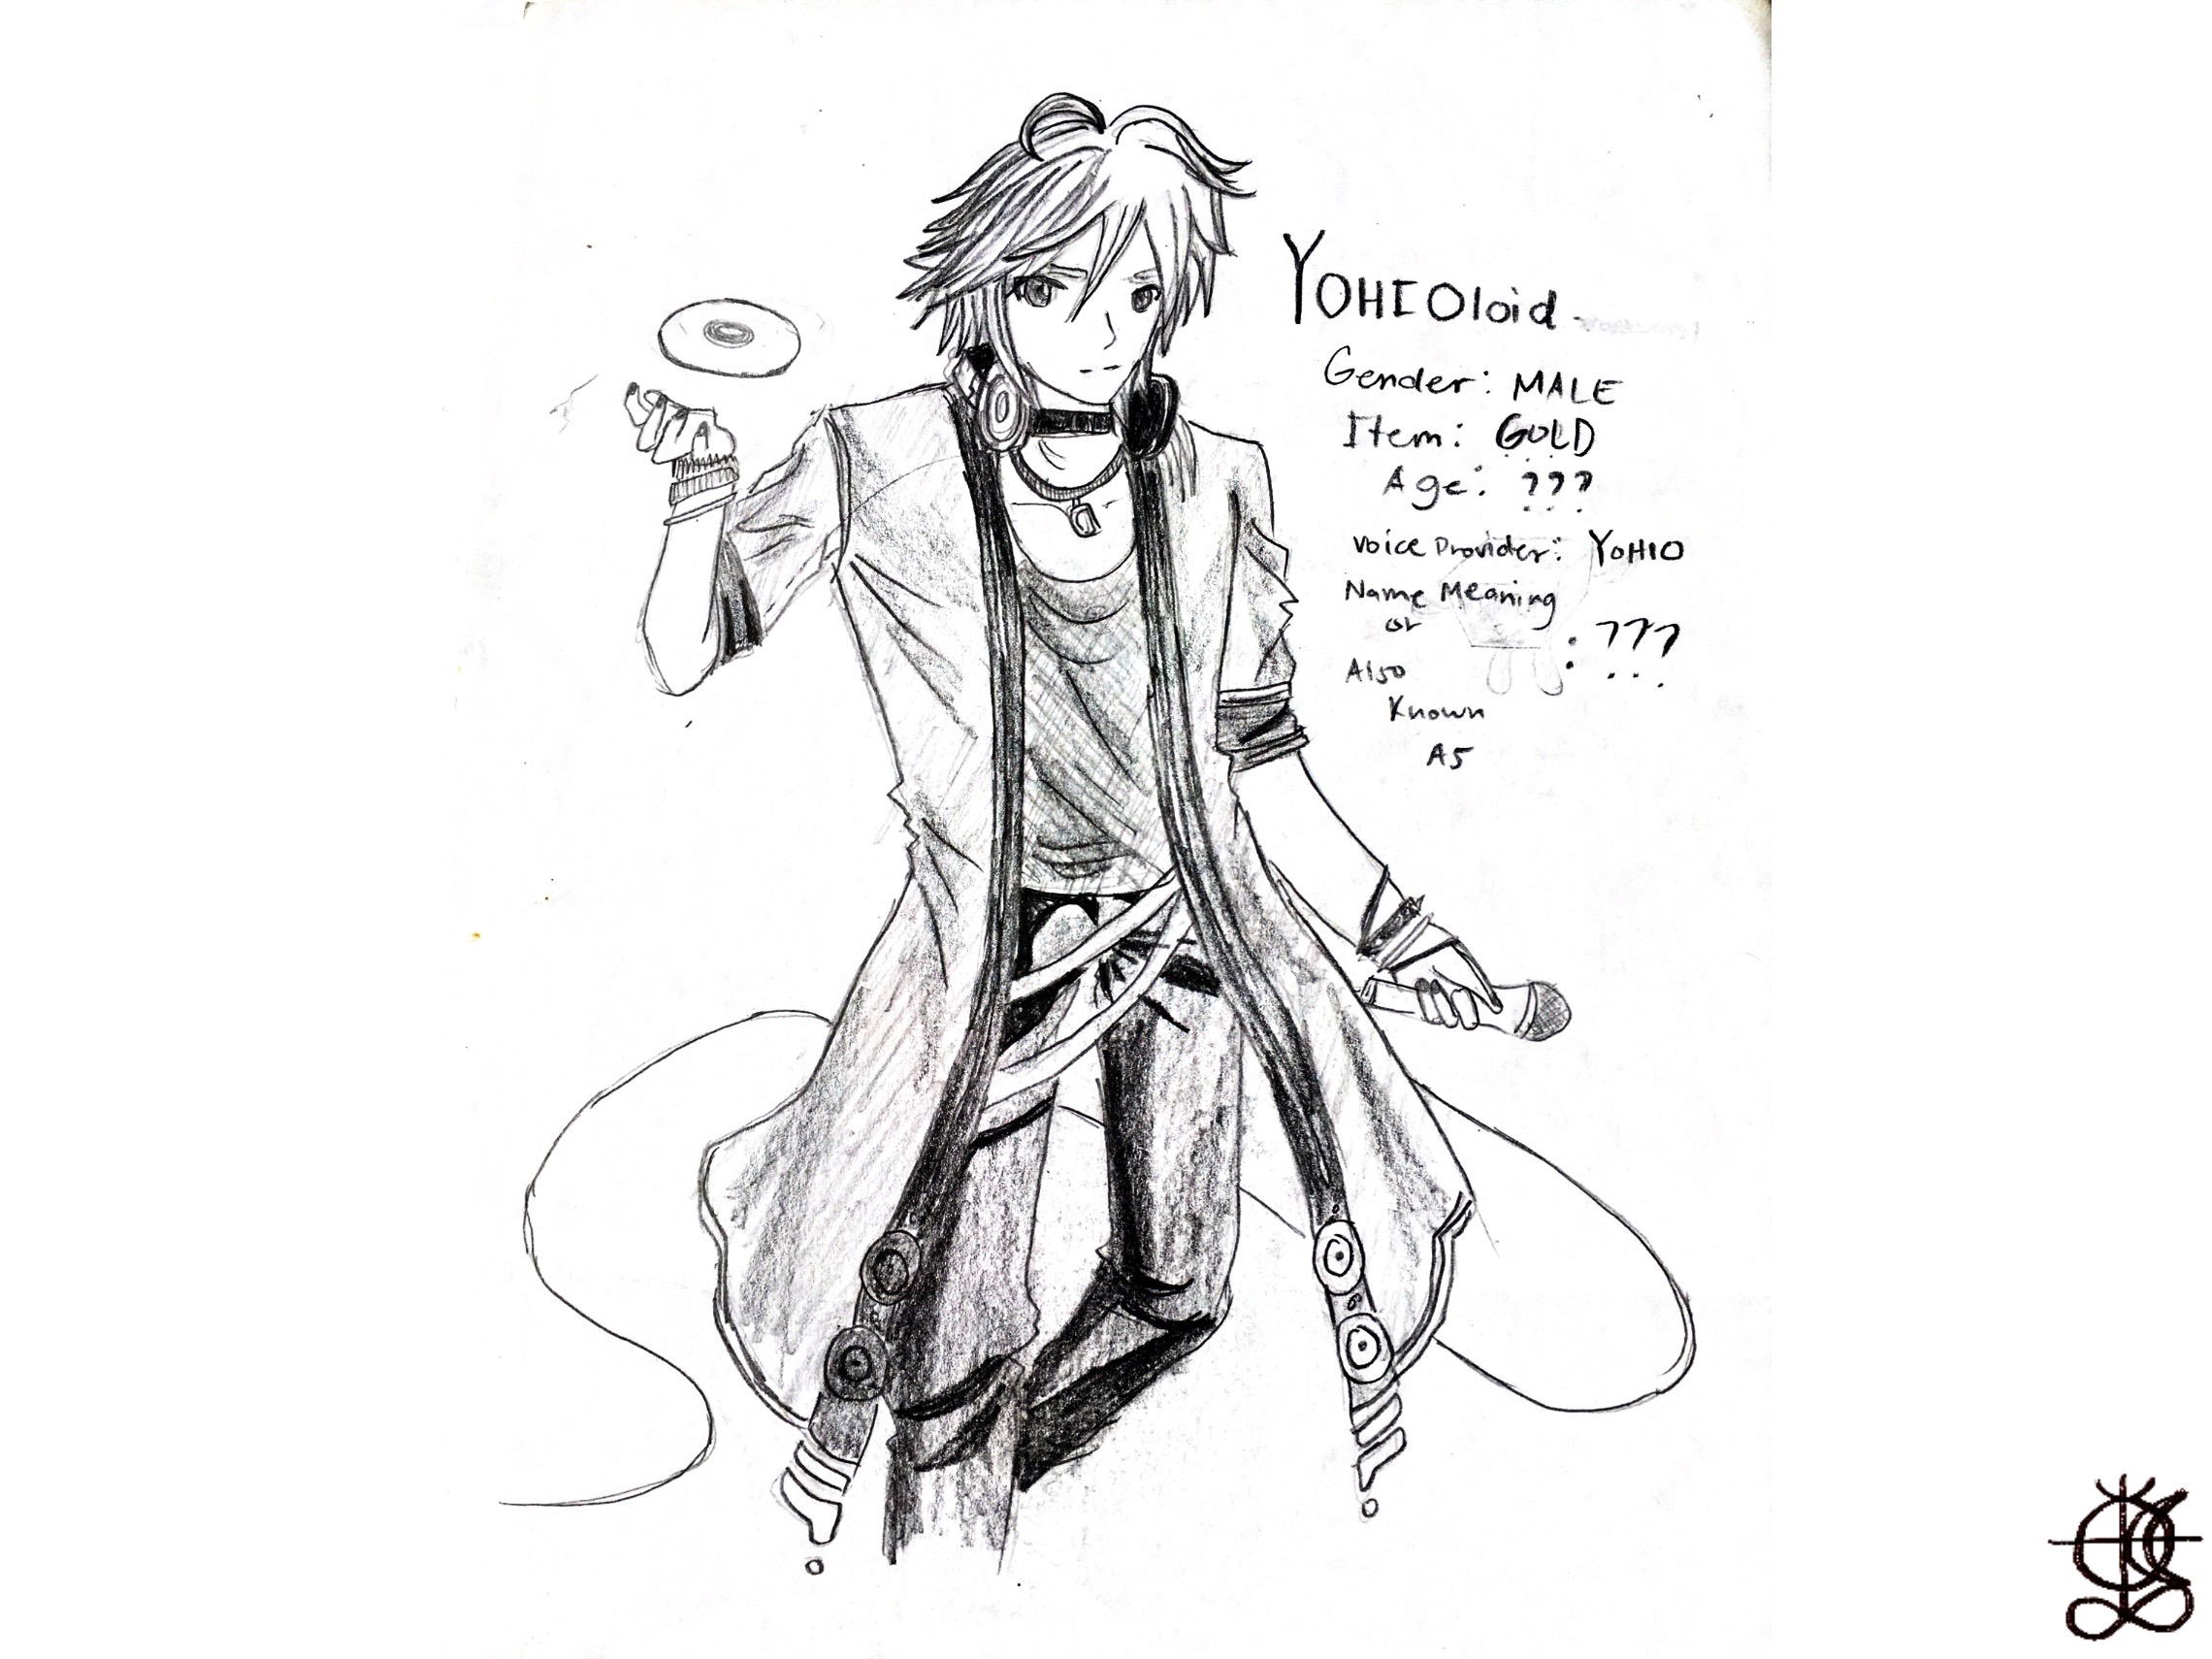 YOHIOloid
Gender: MALE
Item: GOLD
Age: ???
Voice Provider: YOHIO
Name Meaning
or
: ???
Also
Known
As